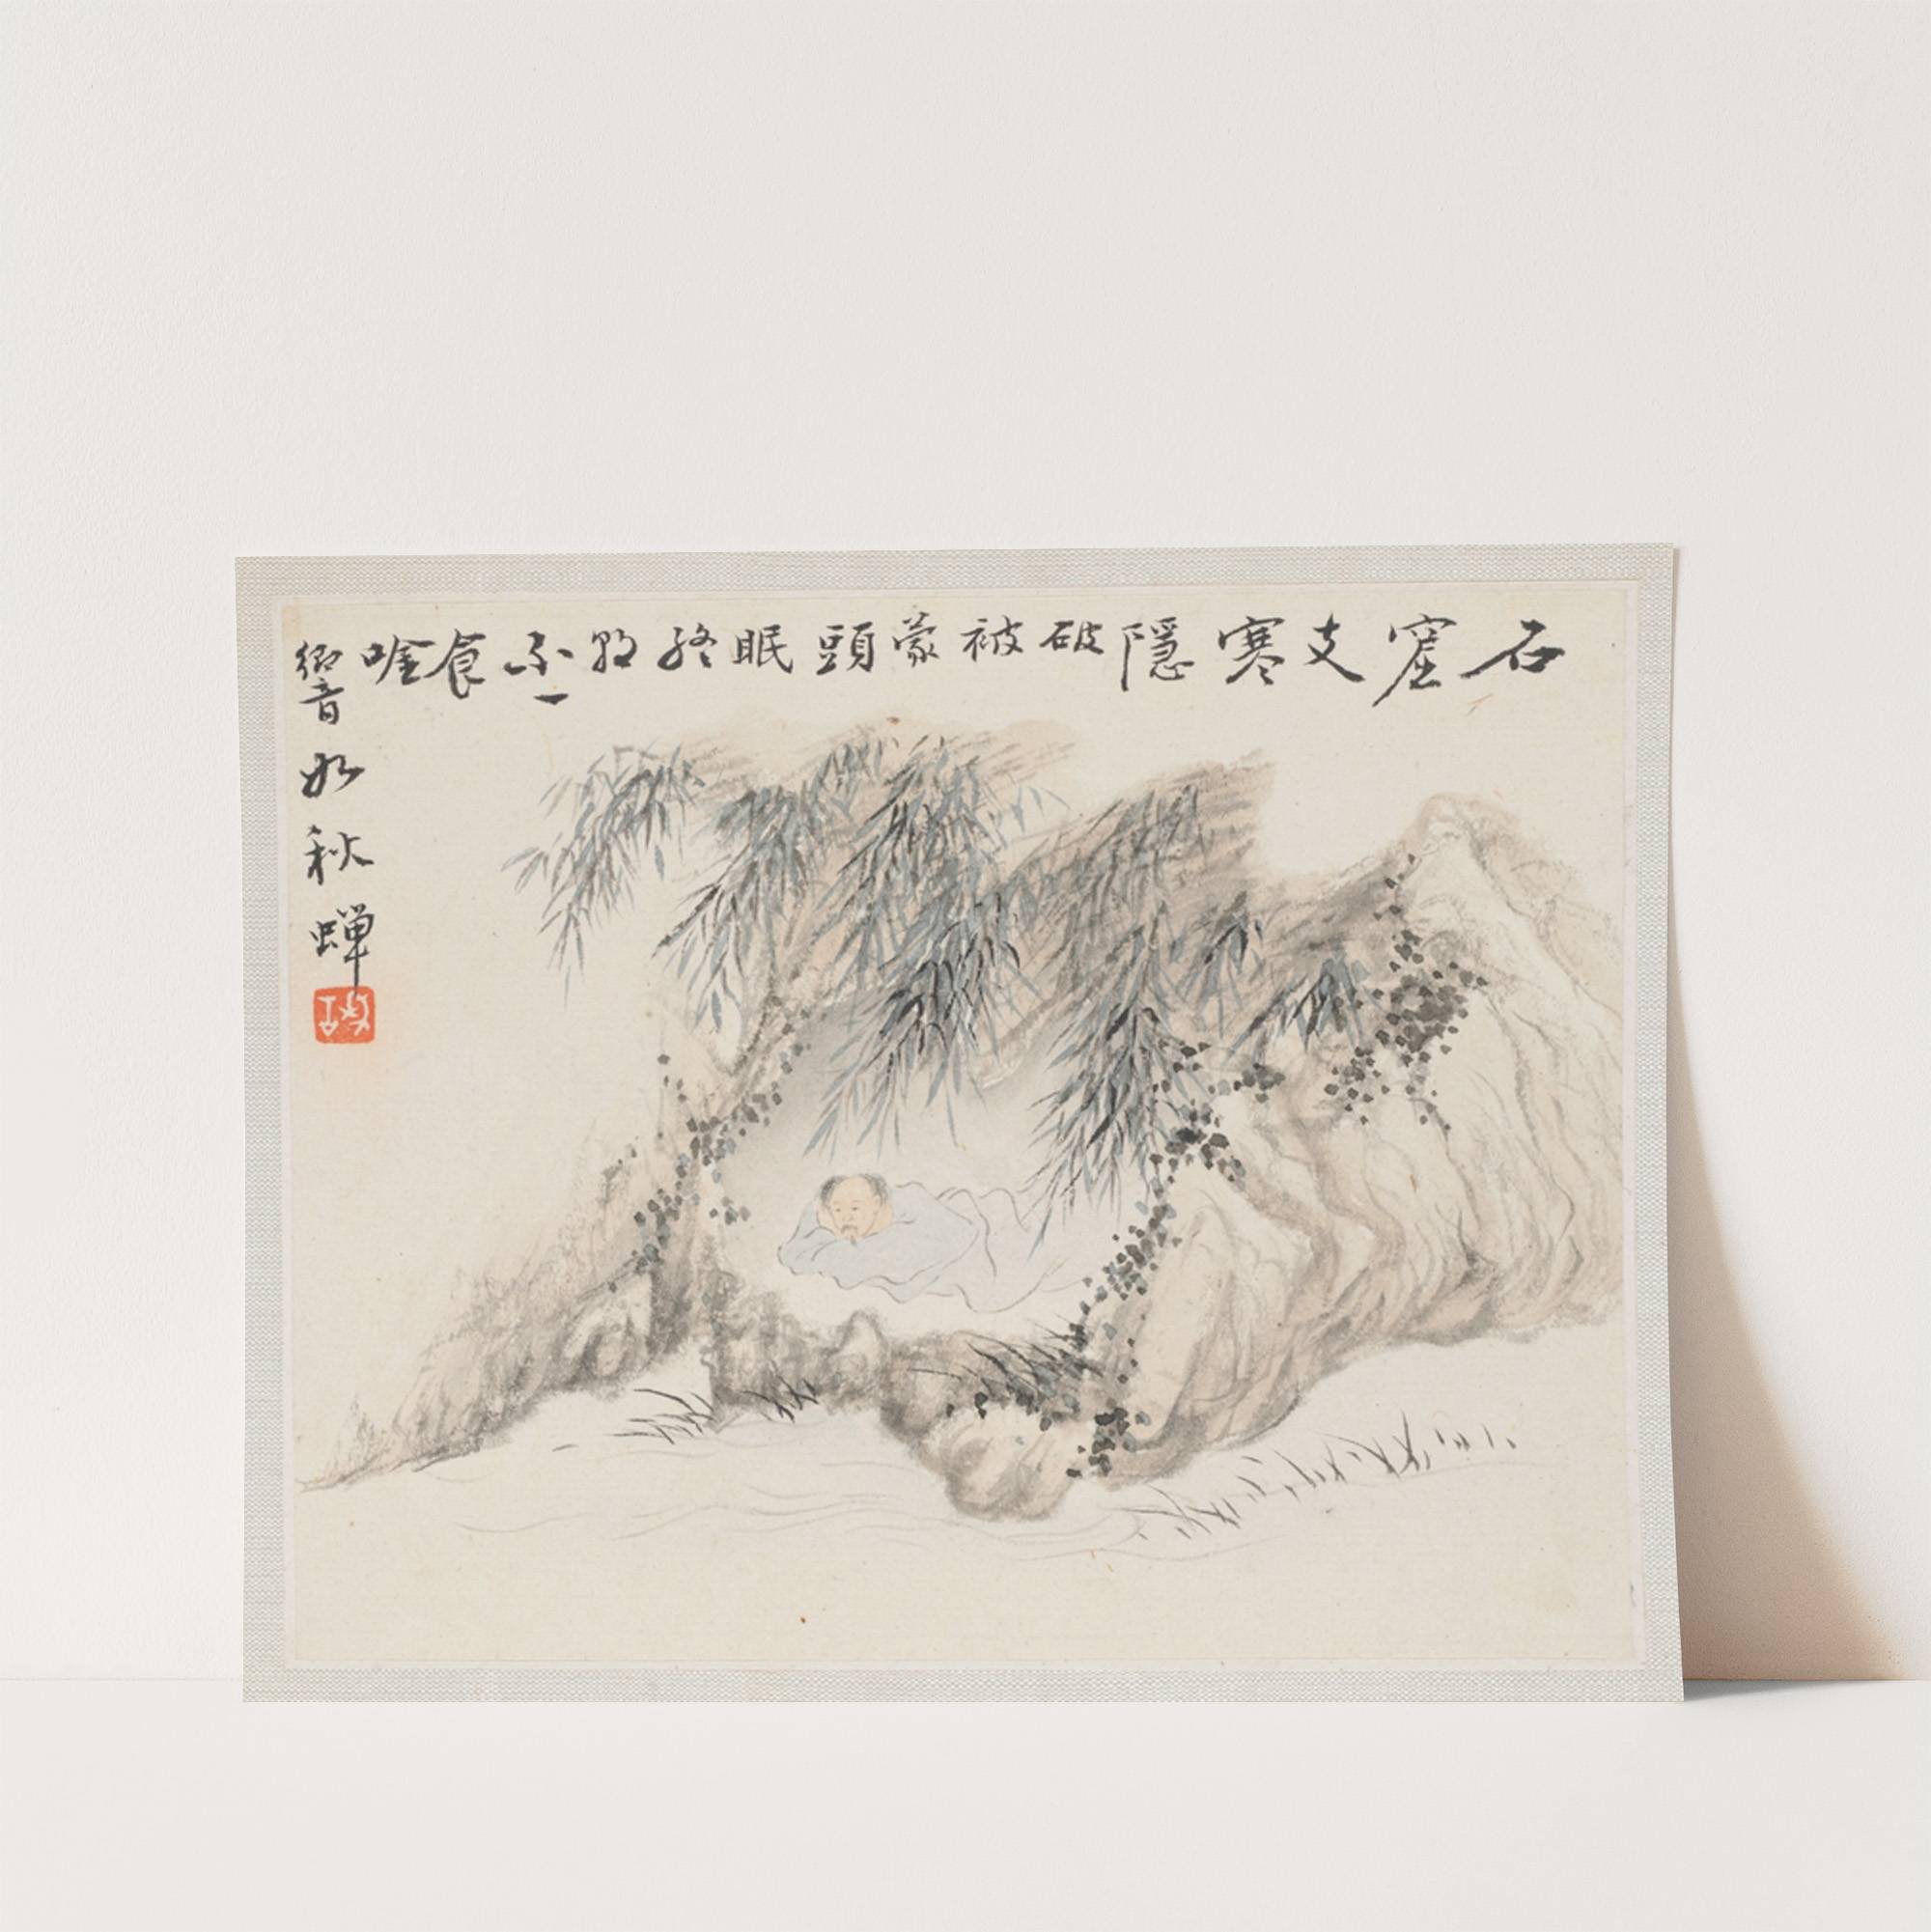 石窟支寒隱破被蒙頭眠終朝不一食唫
響如秋蟬